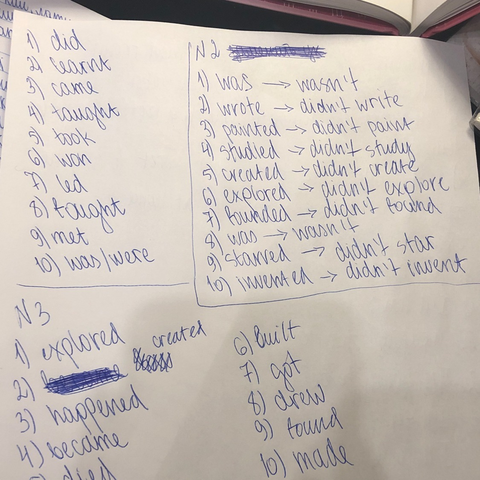 1) did
2) learnt
3) came
4) taught
5) took
6) won
7) led
8) fought
9) met
10) was/were
N2
1) was → wasn't
2) wrote → didn't write
3) painted → didn't paint
4) studied → didn't study
5) created → didn't create
6) explored → didn't explore
7) founded → didn't found
8) was → wasn't
9) starred → didn't star
10) invented → didn't invent
N3
1) explored
2) created
3) happened
4) became
5) died
6) Built
7) got
8) drew
9) found
10) made